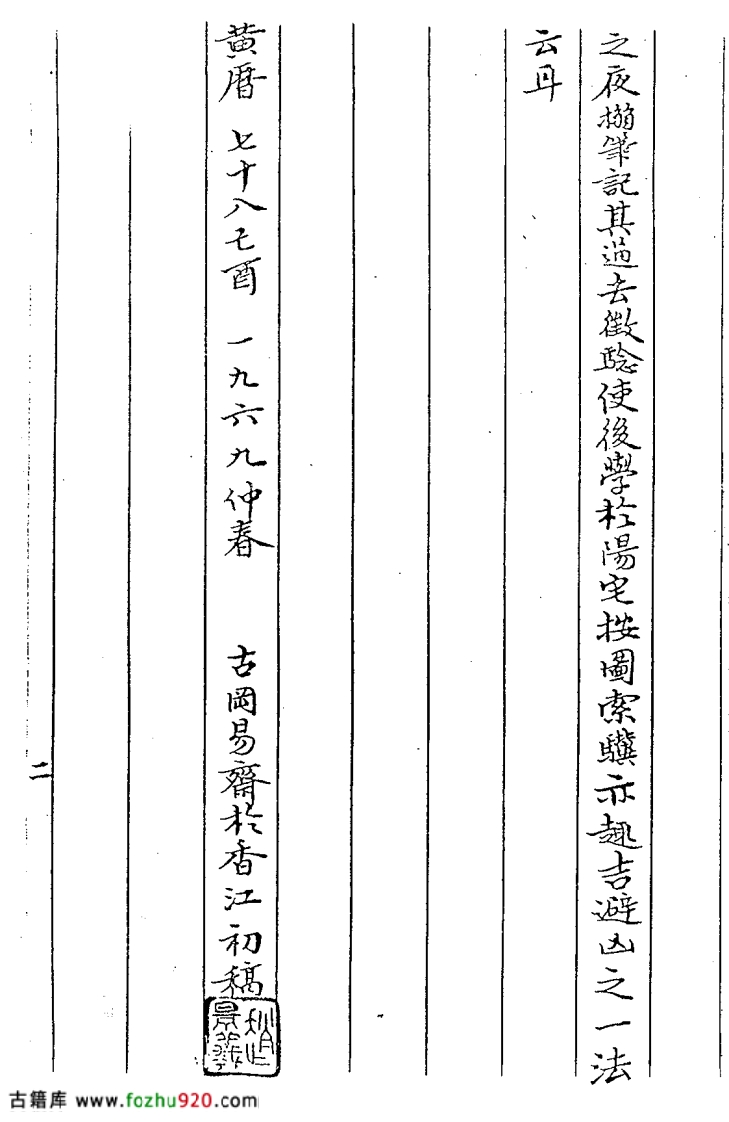 之夜搦筆記其過去徵驗使後學於陽宅按圖索驥亦趨吉避凶之一法
云耳
黃曆 七十八己酉 一九六九仲春 古岡易齋於香江初稿
二
古籍库 www.fozhu920.com